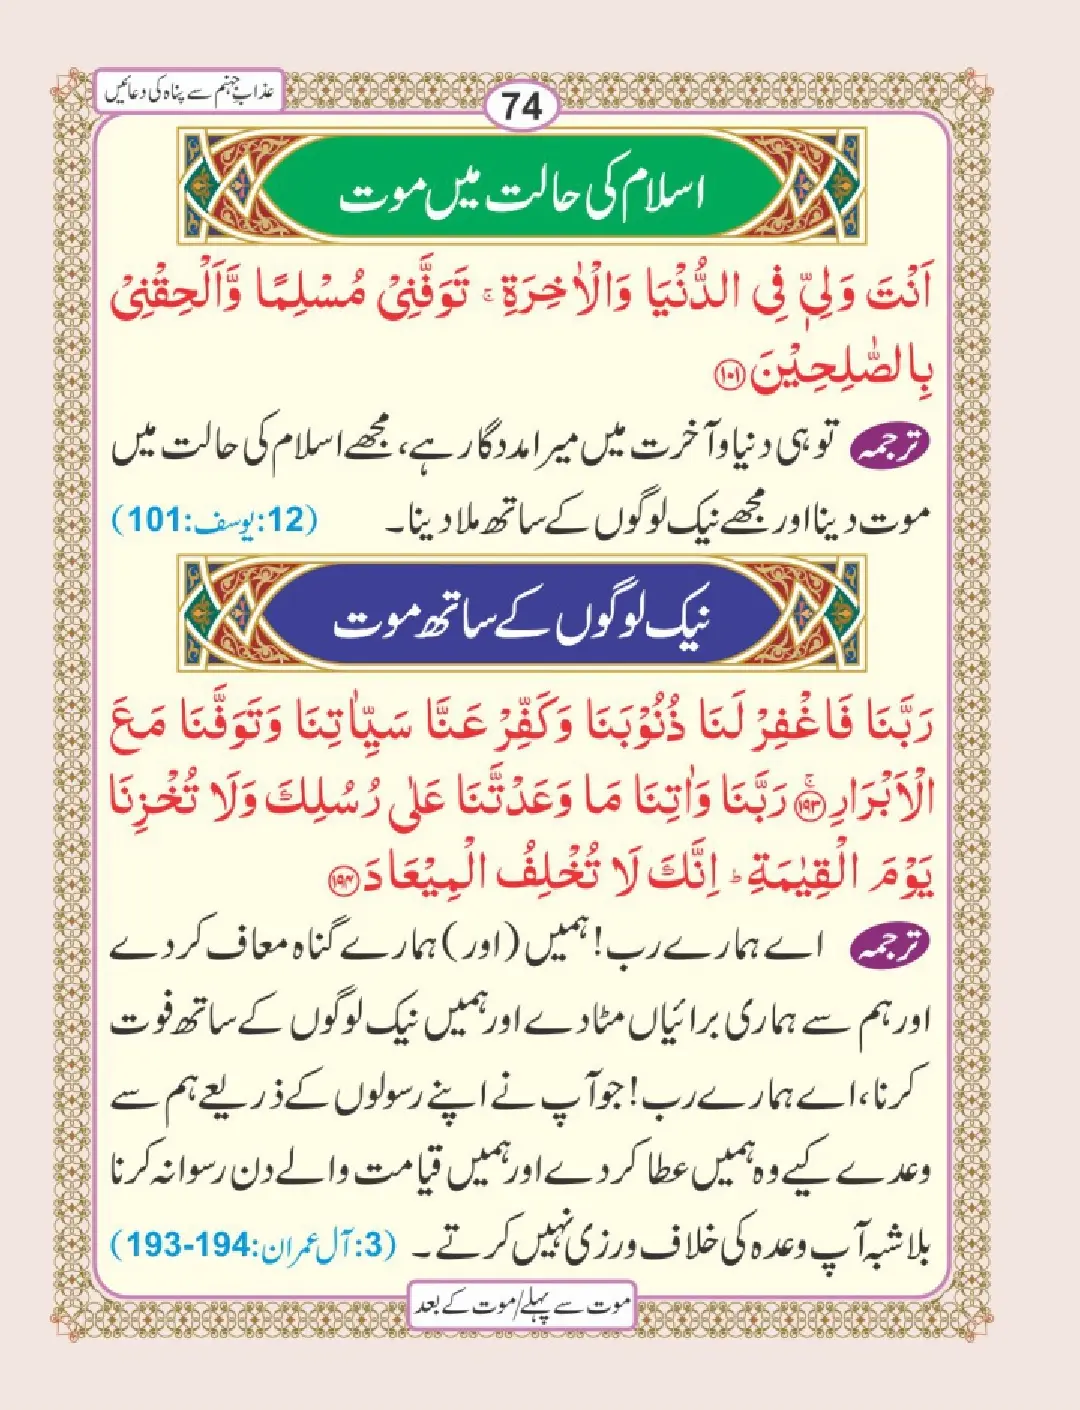 عذابِ جہنم سے پناہ کی دعائیں
74
اسلام کی حالت میں موت
اَنْتَ وَلِیّٖ فِی الدُّنْیَا وَالْاٰخِرَةِ ۚ تَوَفَّنِیْ مُسْلِمًا وَّاَلْحِقْنِیْ
بِالصّٰلِحِیْنَ ﴿۱۰۱﴾
ترجمہ تو ہی دنیا و آخرت میں میرا مددگار ہے، مجھے اسلام کی حالت میں
موت دینا اور مجھے نیک لوگوں کے ساتھ ملا دینا۔ (12:یوسف:101)
نیک لوگوں کے ساتھ موت
رَبَّنَا فَاغْفِرْ لَنَا ذُنُوْبَنَا وَكَفِّرْ عَنَّا سَیِّاٰتِنَا وَتَوَفَّنَا مَعَ
الْاَبْرَارِ ﴿۱۹۳﴾ۚ رَبَّنَا وَاٰتِنَا مَا وَعَدْتَّنَا عَلٰی رُسُلِكَ وَلَا تُخْزِنَا
یَوْمَ الْقِیٰمَةِ ؕ اِنَّكَ لَا تُخْلِفُ الْمِیْعَادَ ﴿۱۹۴﴾
ترجمہ اے ہمارے رب! ہمیں (اور) ہمارے گناہ معاف کر دے
اور ہم سے ہماری برائیاں مٹا دے اور ہمیں نیک لوگوں کے ساتھ فوت
کرنا، اے ہمارے رب! جو آپ نے اپنے رسولوں کے ذریعے ہم سے
وعدے کیے وہ ہمیں عطا کر دے اور ہمیں قیامت والے دن رسوا نہ کرنا
بلاشبہ آپ وعدہ کی خلاف ورزی نہیں کرتے۔ (3:آل عمران:193-194)
موت سے پہلے/موت کے بعد